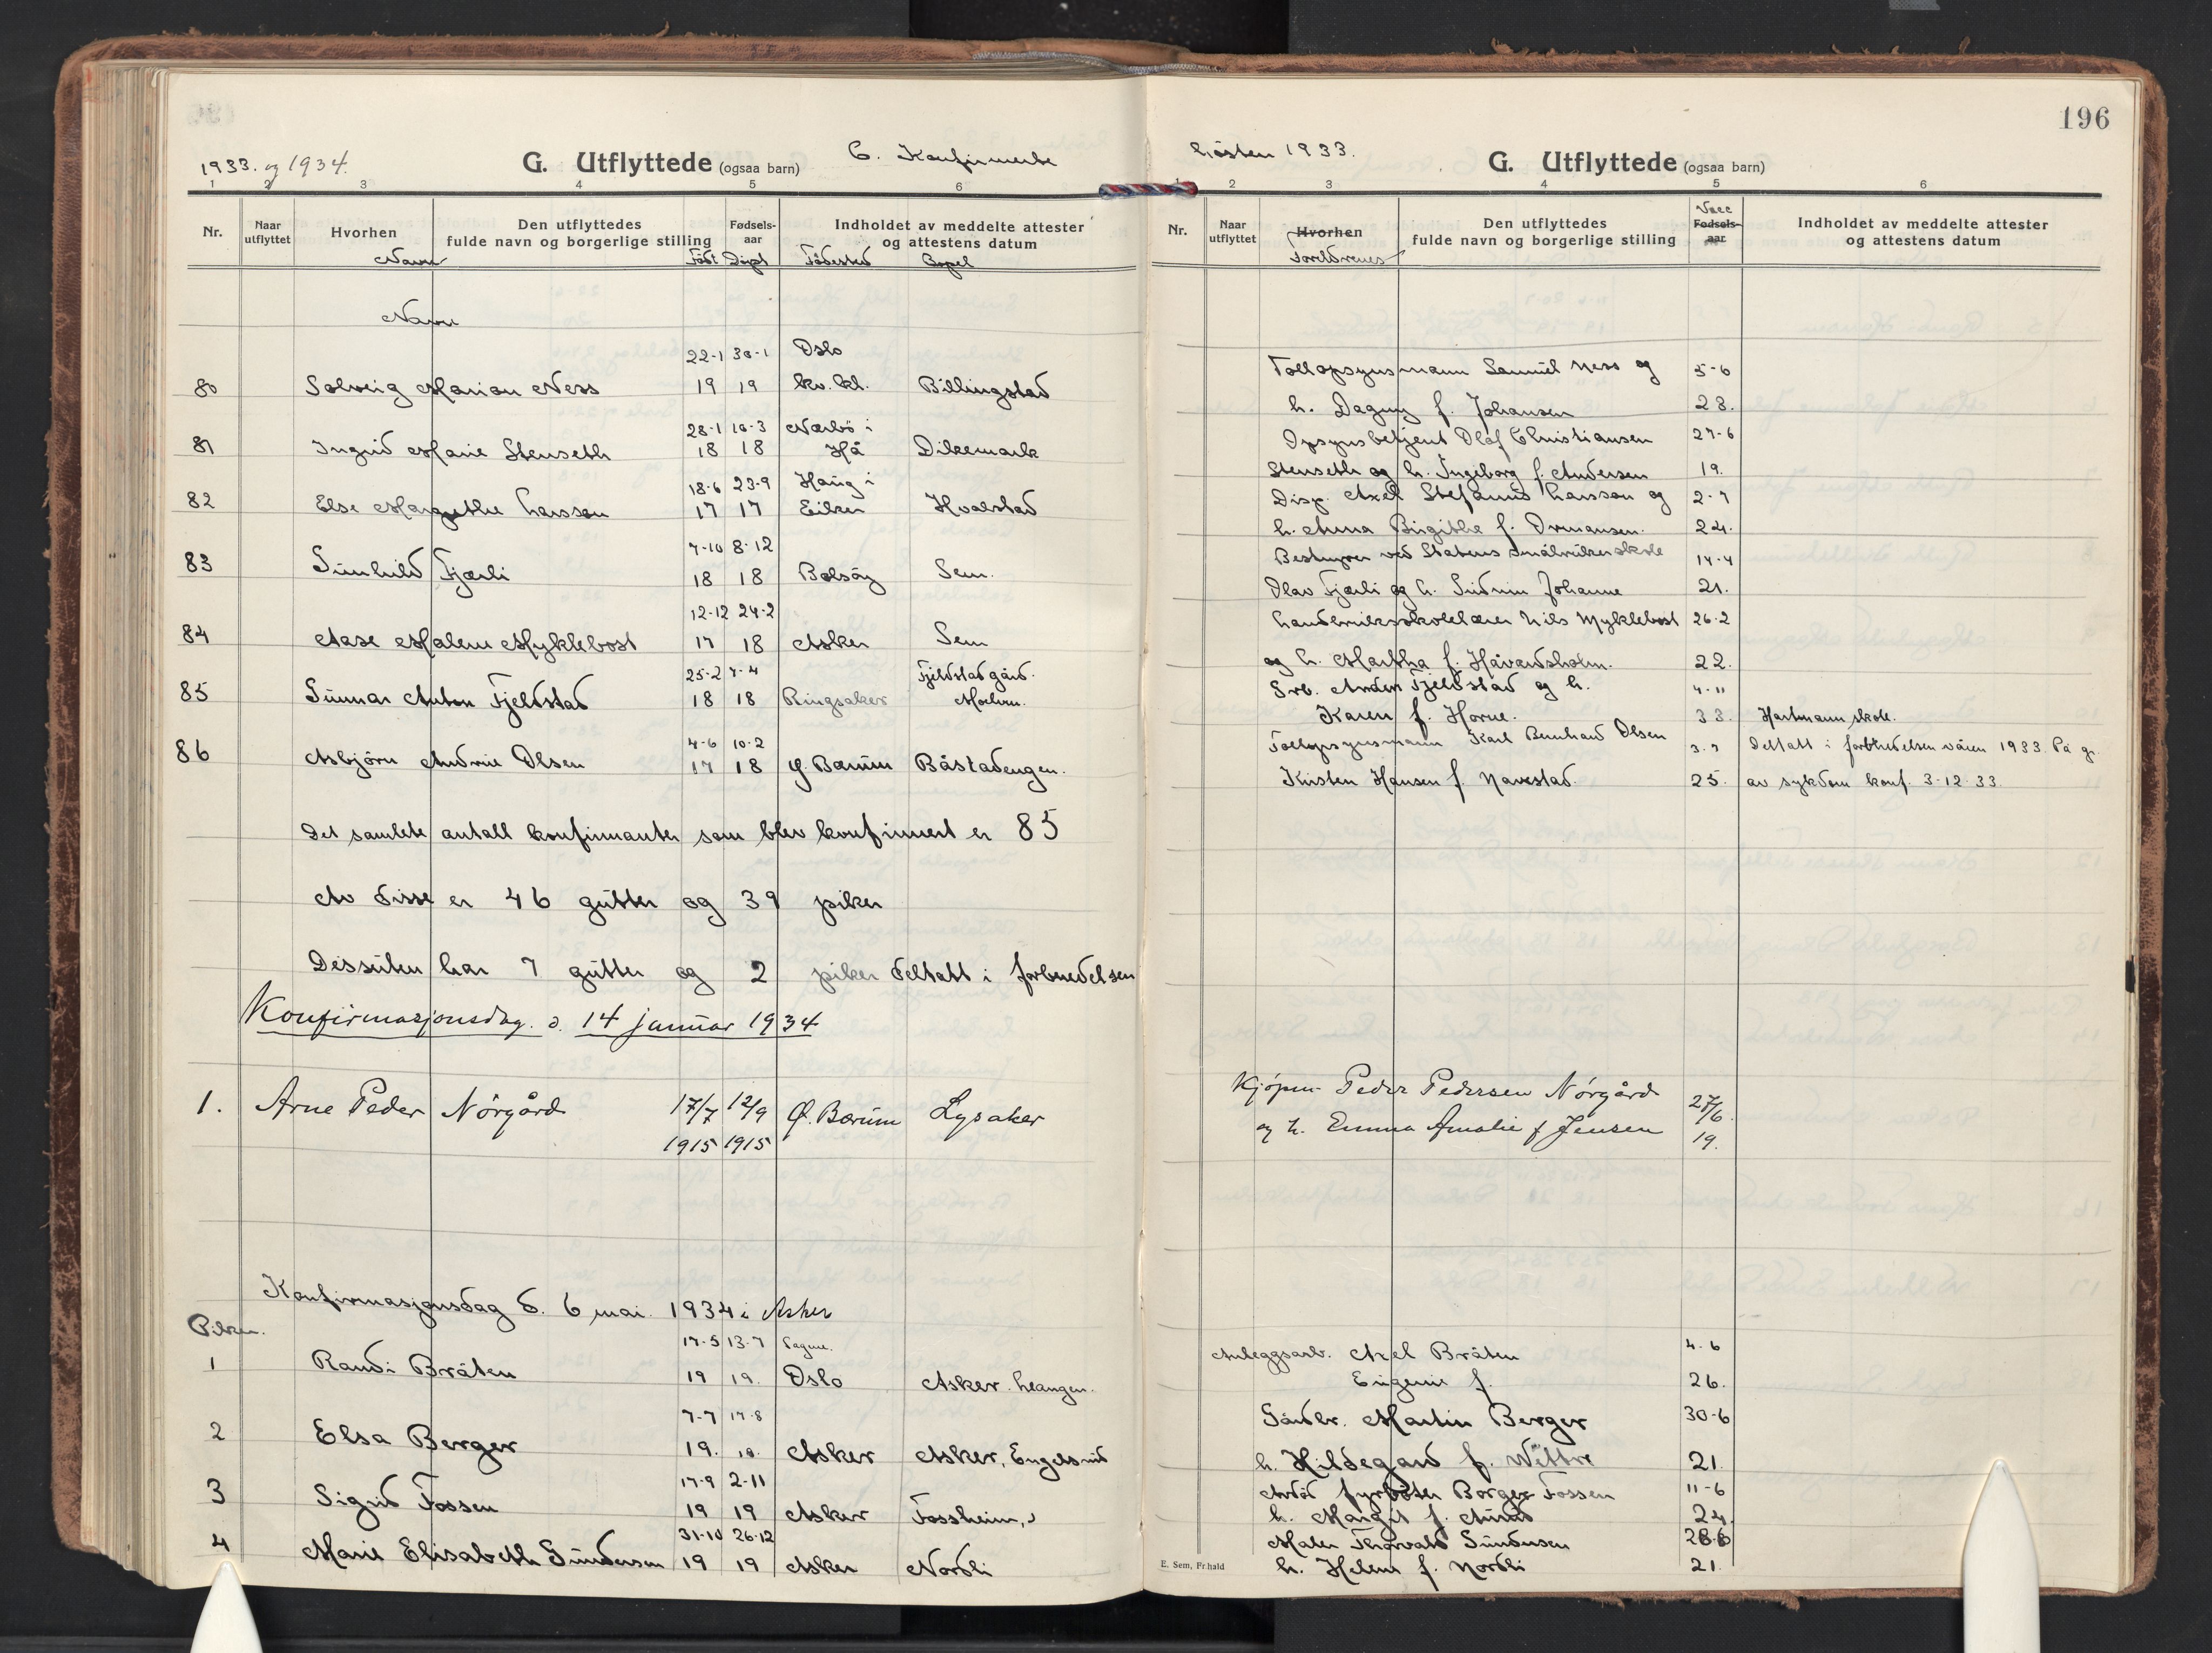 1933. og 1934.
G. Utflyttede (ogsaa barn)
C. Konfirmerte
1 2 3 4 5 6
Nr.
Naar utflyttet
Hvorhen
Den utflyttedes fulde navn og borgerlige stilling
Fødsels-aar
Indholdet av meddelte attester og attestens datum
Navn
Født Døpt
Fødested
Bopel
Navn
22-1 30-1 Oslo
80 Solveig Marian Ness 19 19 kv. kl. Billingstad
28-1 10-3 Nærbö i
81 Ingrid Marie Stenseth 18 18 Hå Dikemark
18-6 23-9 Haug i
82 Else Margrethe Larsson 17 17 Eiker Hvalstad
7-10 8-12
83 Gunhild Fjærli 18 18 Bolsöy Sem.
12-12 24-2
84 Aase Malene Myklebost 17 18 Asker Sem
25-2 7-4 Fjeldstad gård.
85 Gunnar Anton Fjeldstad 18 18 Ringsaker Moelven.
4-6 10-2
86 Asbjörn Andrew Olsen 17 18 Ö. Bærum Båstadengen.
Det samlete antall konfirmanter som blev konfirmert er 85
Av disse er 46 gutter og 39 piker
Dessuten har 7 gutter og 2 piker deltatt i forberedelsen
Konfirmasjonsdag. d. 14 januar 1934
1. Arne Peder Nörgård 17/7 12/9 Ø. Bærum Lysaker
1915 1915
Konfirmasjonsdag d. 6 mai. 1934 i Asker
Piker.
17-5 13-7 Sagene.
1 Randi Bråten 19 19. Oslo Asker. Leangen.
7-7 17-8
2 Elsa Berger 19. 19. Asker Asker, Engelsrud
17-9 2-11
3 Sigrid Fossen 19 19 Asker Fossheim,
31-10 26-12
4 Marie Elisabeth Gundersen 19 19 Asker Nordli
196
hösten 1933.
G. Utflyttede (ogsaa barn)
1 2 3 4 5 6
Nr.
Naar utflyttet
Hvorhen
Den utflyttedes fulde navn og borgerlige stilling
Vacc
Fødsels-aar
Indholdet av meddelte attester og attestens datum
Foreldrenes
Tollopsynsmann Samuel Ness og 5-6
h. Dagny f. Johansen 28.
Opsynsbetjent Olaf Christiansen 27-6
Stenseth og h. Ingeborg f. Andersen 19.
Disp. Axel Stefanus Larsson og 2-7
h. Anna Birgitha f. Ormansen. 24.
Bestyrer ved Statens småbrukerskole 14-4
Olav Fjærli og h. Gudrun Johanne 21.
Landbruksskolelærer Nils Myklebost 26-2
og h. Martha f. Håvardsholm. 22.
Grb. Anders Fjeldstad og h. 4-11
Karen f. Horne. 33. Hartmann skole.
Tollopsynsmann Karl Bernhard Olsen 3-7 Deltatt i forbredelsen våren 1933. På gr.
Kristen Hansen f. Navestad. 25. av sykdom konf. 3-12-33.
Kjöpm. Peder Pedersen Nörgård 27/6
og h. Emma Amalie f Jensen 19.
Anleggsarb. Axel Bråten 4-6
Eugenie f. 26.
Gårdbr. Martin Berger 30-6
h. Hildegard f. Wettre 21.
Avdöd fyrböter Borger Fossen 11-6
h. Margit f. Aurud 24.
Maler Thorvald Gundersen 28-6
h. Helene f. Nordli 21.
E. Sem, Fr.hald